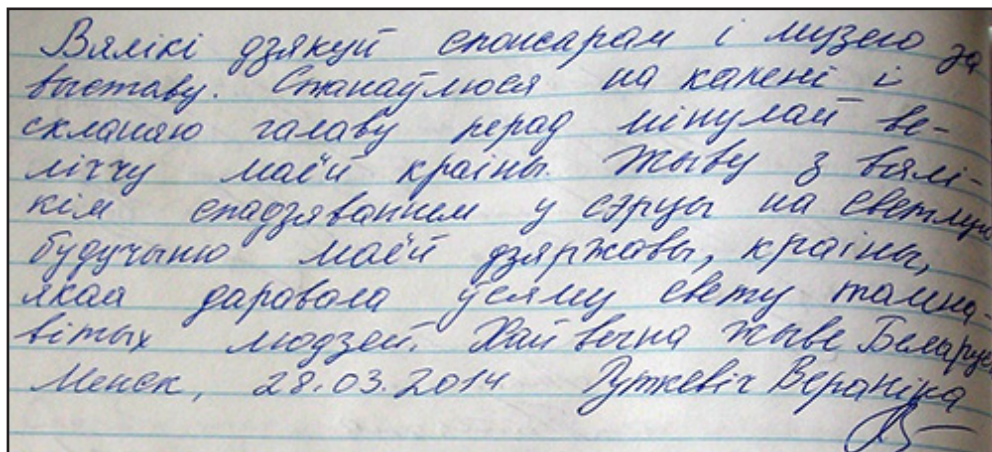 Вялікі дзякуй спонсарам і музею за
выставу. Станаўлюся на калені і
схіляю галаву перад мінулай ве-
ліччу маёй краіны. Жыву з вялі-
кім спадзяваннем у сэрцы на светлую
будучыню маёй дзяржавы, краіны,
якая даравала ўсяму свету тална-
вітых людзей. Хай вечна жыве Беларусь
Менск, 28.03.2014 Руткевіч Вераніка